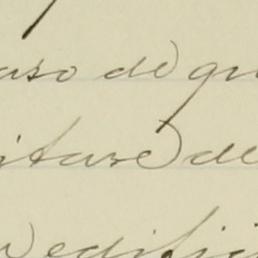 aso de qu
itase de
edifici